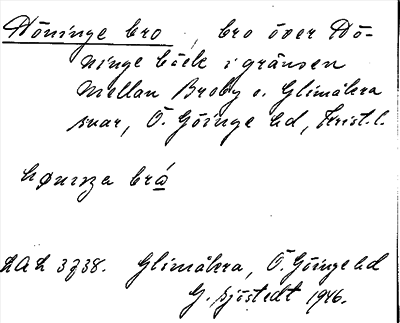 Höninge bro, bro över Hö-
ninge bäck i gränsen
mellan Broby o. Glimåkra
snar, Ö. Göinge hd, Krist. l.
høninga brå
LAL 3738. Glimåkra, Ö. Göinge hd
G. Sjöstedt 1946.